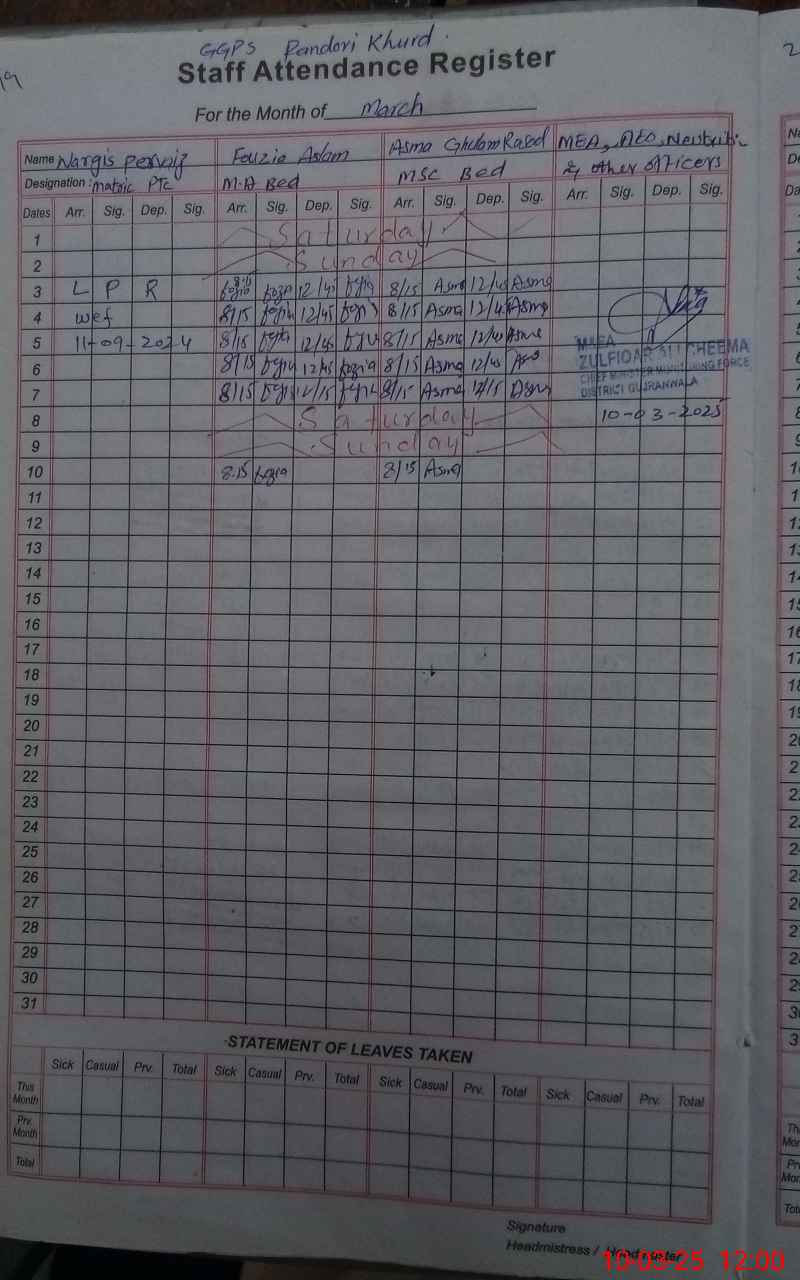 GGPS Pandori Khurd.
Staff Attendance Register
For the Month of March
Name Nargis Pervaiz Fouzia Aslam Asma Ghulam Rasool MEA, AEO,
Designation: matric PTC M.A Bed MSC Bed & other officers
Dates Arr. Sig. Dep. Sig. Arr. Sig. Dep. Sig. Arr. Sig. Dep. Sig. Arr. Sig. Dep. Sig.
1 Saturday
2 Sunday
3 L P R 8/15 fozia 12/45 fozia 8/15 Asma 12/45 Asma
4 wef 8/15 fozia 12/45 fozia 8/15 Asma 12/45 Asma
5 11-09-2024 8/15 fozia 12/45 fozia 8/15 Asma 12/45 Asma
MAEA
ZULFIQAR ALI CHEEMA
CHIEF MINISTER MONITORING FORCE
DISTRICT GUJRANWALA
6 8/15 fozia 12/45 fozia 8/15 Asma 12/45 Asma
7 8/15 fozia 12/15 fozia 8/15 Asma 12/15 Asma
8 Saturday 10-03-2025
9 Sunday
10 8.15 fozia 8/15 Asma
11
12
13
14
15
16
17
18
19
20
21
22
23
24
25
26
27
28
29
30
31
STATEMENT OF LEAVES TAKEN
Sick Casual Prv. Total Sick Casual Prv. Total Sick Casual Prv. Total Sick Casual Prv. Total
This Month
Prv. Month
Total
Signature
Headmistress / Headmaster
10-03-25 12:00